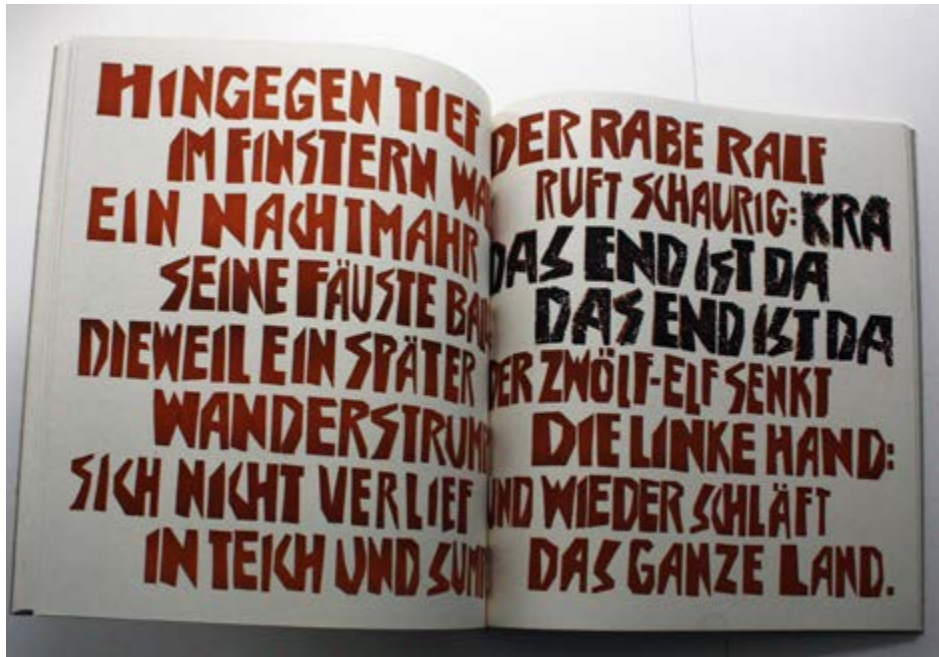 HINGEGEN TIEF
IM FINSTERN
EIN NACHTMAHR
SEINE FÄUSTE
DIEWEIL EIN SPÄTER
WANDERSTRUMP
SICH NICHT VERLIEF
IN TEICH UND SUMP
DER RABE RALF
RUFT SCHAURIG: KRA
DAS END IST DA
DAS END IST DA
DER ZWÖLF-ELF SENKT
DIE LINKE HAND:
UND WIEDER SCHLÄFT
DAS GANZE LAND.